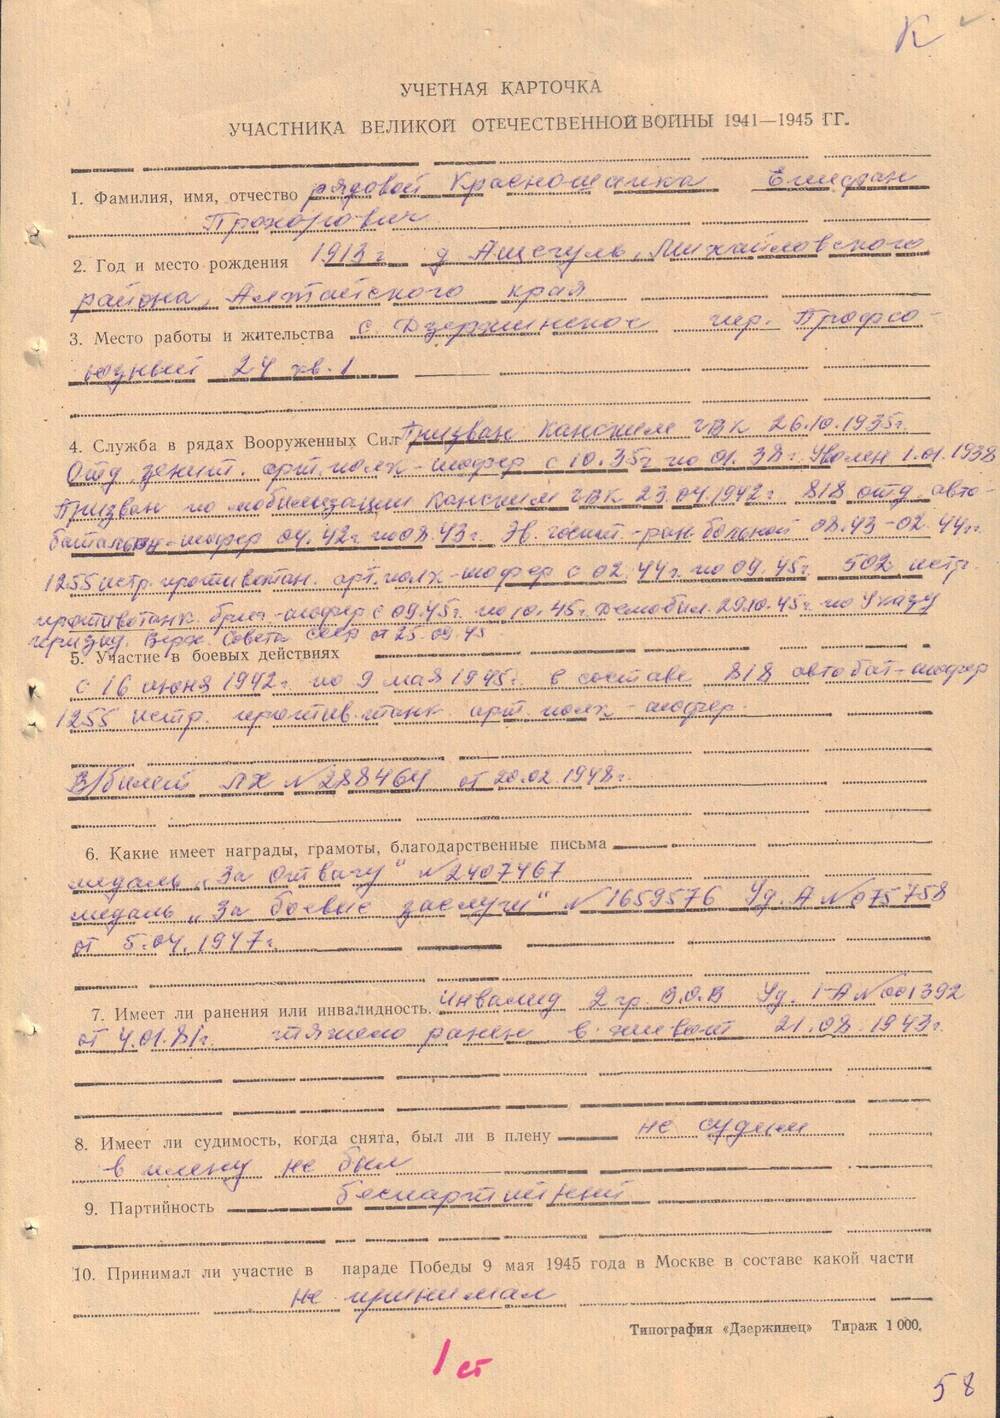 К
УЧЕТНАЯ КАРТОЧКА
УЧАСТНИКА ВЕЛИКОЙ ОТЕЧЕСТВЕННОЙ ВОЙНЫ 1941—1945 ГГ.
1. Фамилия, имя, отчество рядовой Красношапка Епифан
Прохорович
2. Год и место рождения 1913 г д Ащегуль, Михайловского
района, Алтайского края
3. Место работы и жительства с. Дзержинское пер. Профсо-
юзный 24 кв. 1
4. Служба в рядах Вооруженных Сил Призван Канским ГВК 26.10.1935г.
Отд зенит. арт. полк - шофер с 10.35г по 01.38г. Уволен 1.01.1938
Призван по мобилизации Канским ГВК 23.04.1942г. 818 отд авто-
батальон-шофер 04.42г по 08.43г. Эв. госпит.-ран. больной 08.43-02.44г.
1255 истр. противотан. арт. полк - шофер с 02.44г. по 09.45г. 502 истр.
противотанк. бриг-шофер с 09.45г. по 10.45г. Демобил. 29.10.45г. по Указу
презид. Верх. Совета СССР от 25.09.45
5. Участие в боевых действиях
с 16 июня 1942г. по 9 мая 1945г. в составе 818 автобат-шофер
1255 истр. против. танк. арт. полк - шофер.
В/билет ЛХ №288464 от 20.02.1948г.
6. Какие имеет награды, грамоты, благодарственные письма
медаль „За отвагу" №2407467
медаль „За боевые заслуги" №1659576 Уд. А №075758
от 5.04.1947г.
7. Имеет ли ранения или инвалидность. инвалид 2 гр. В.О.В Уд. I-А №001392
от 4.01.81г. тяжело ранен в живот 21.08.1943г.
8. Имеет ли судимость, когда снята, был ли в плену не судим
в плену не был
9. Партийность беспартийный
10. Принимал ли участие в параде Победы 9 мая 1945 года в Москве в составе какой части
не принимал
Типография «Дзержинец» Тираж 1 000.
1 ст
58